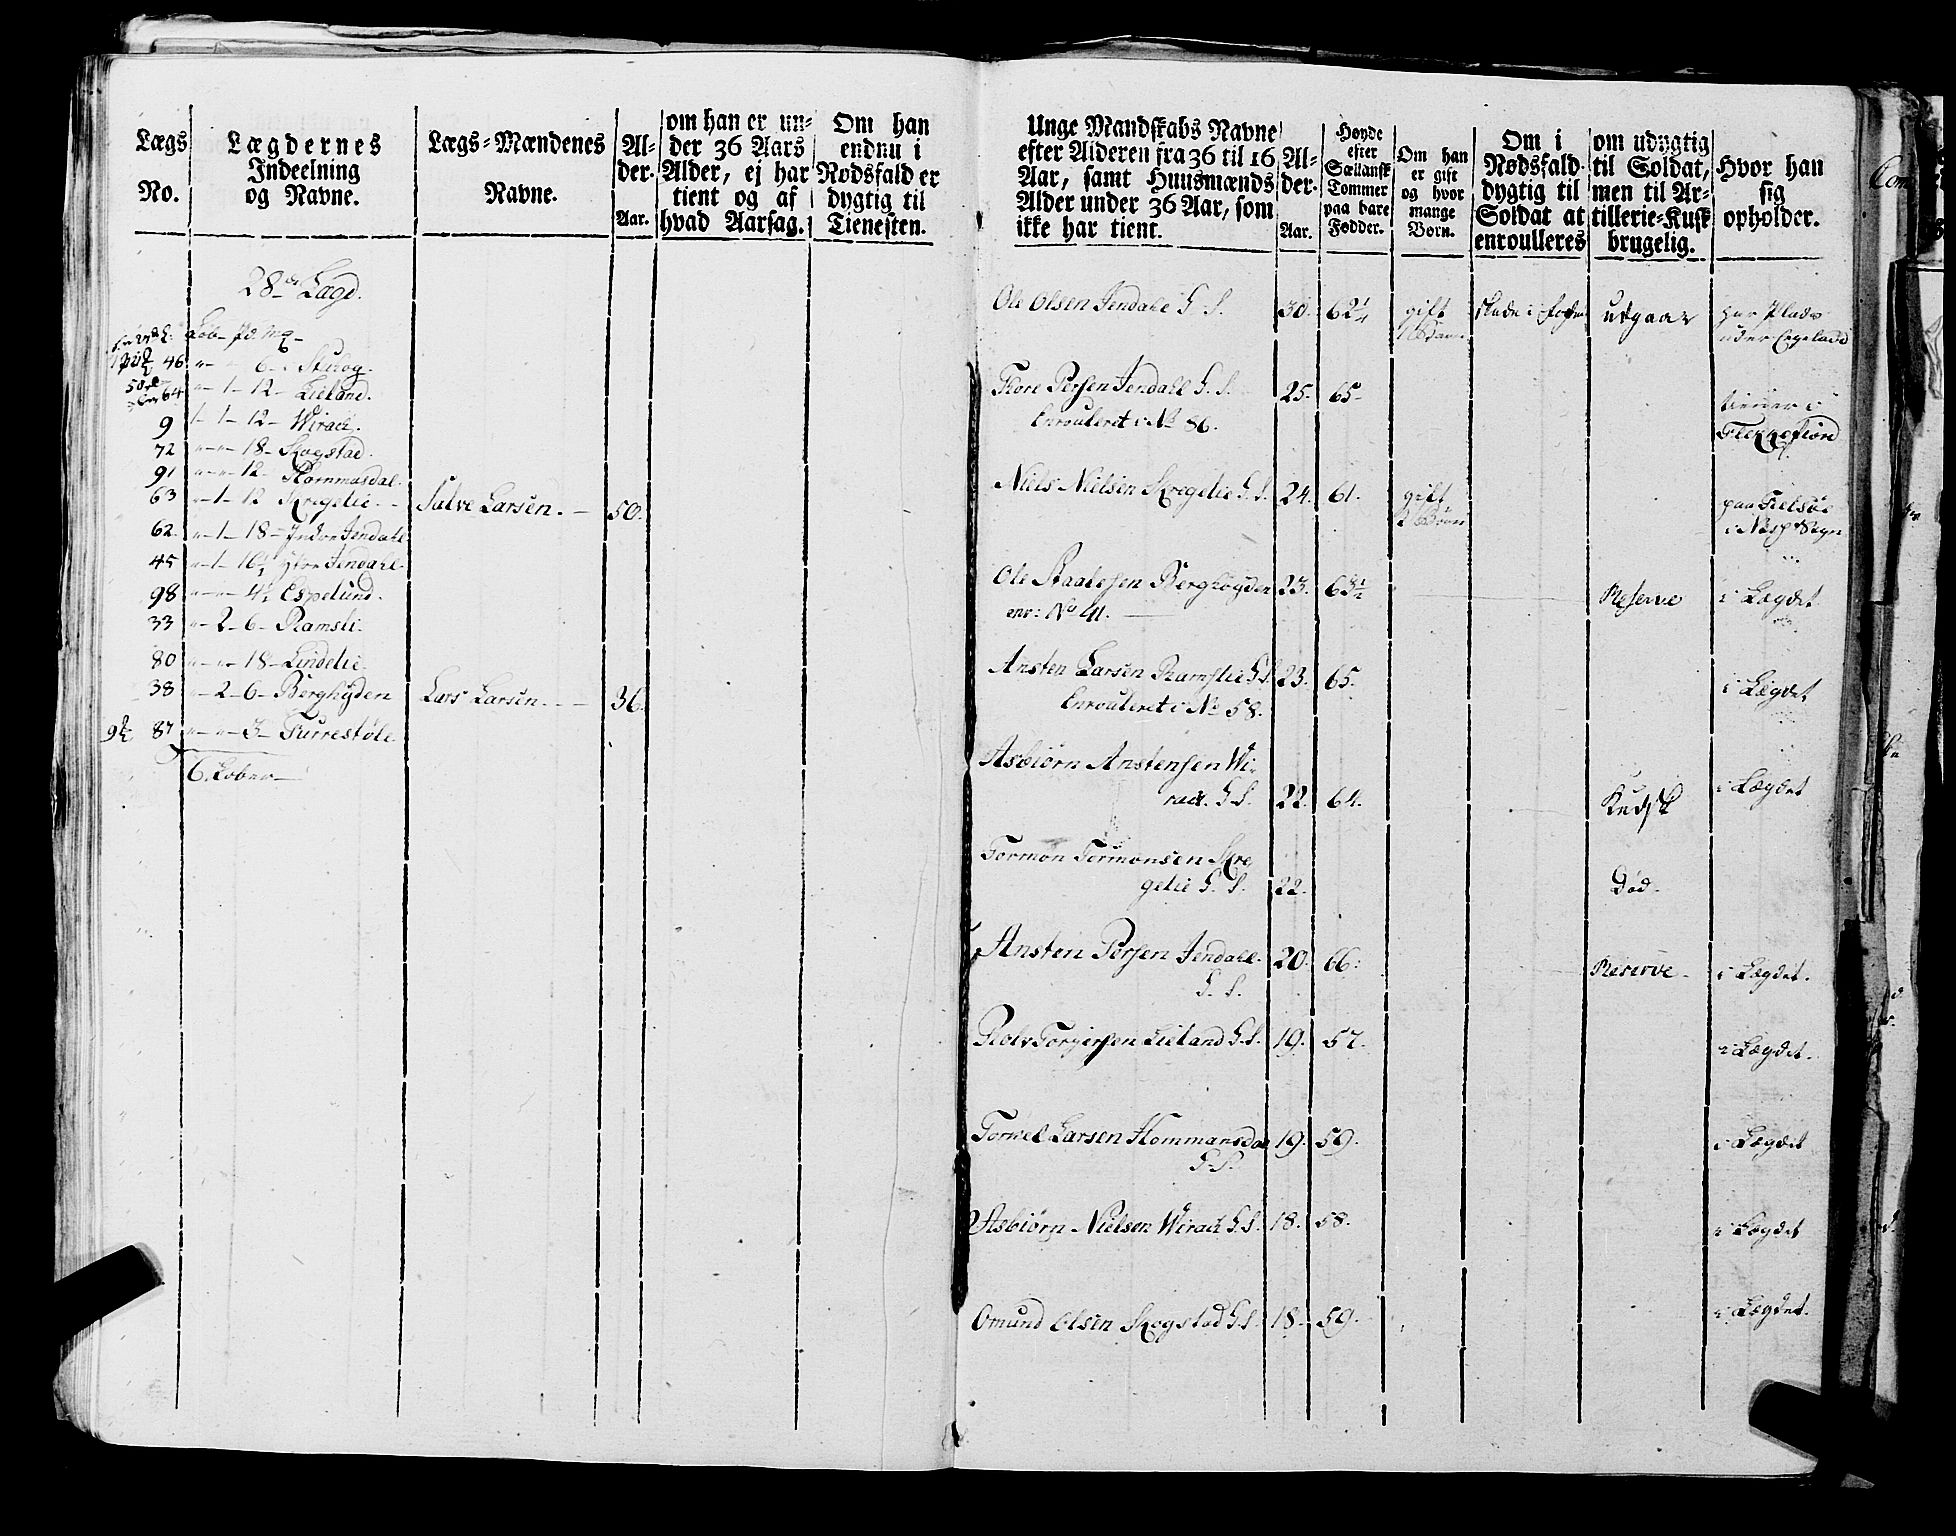 Lægs
No.
Lægdernes
Indeelning
og Navne.
Lægs-Mændenes
Navne.
Al-
der.
Aar.
om han er un-
der 36 Aars
Alder, ej har
tient og af
hvad Aarsag.
Om han
endnu i
Nødsfald er
dygtig til
Tienesten.
28de Lægd.
46 " " 6 Sturog.
64 " 1 12 Lieland.
9 1 1 12 Wirach.
72 " " 18 Skogstad.
91 " " 12 Hommasdal.
63 " 1 12 Skregelie. Salve Larsen. 50.
62 " 1 18 Indre Jendahl
45 " 1 16½ Ytre Jendahl.
98 " " 4½ Espelund.
33 " 2 6 Ramsli.
80 " " 18 Lindelie.
38 " 2 6 Berghøyden Lars Larsen. 36.
87 " " 3 Furrestøle.
6. Løber
Unge Mandskabs Navne
efter Alderen fra 36 til 16
Aar, samt Huusmænds
Alder under 36 Aar, som
ikke har tient.
Al-
der.
Aar.
Høyde
efter
Sællansk
Tommer
paa bare
Fødder.
Om han
er gift
og hvor
mange
Børn.
Om i
Nødsfald
dygtig til
Soldat at
enroulleres
om udygtig
til Soldat,
men til Ar-
tillerie-Kusk
brugelig.
Hvor han
sig
opholder.
Ole Olsen Jendahl G. S. 30. 62¼ gift skade i foden udgaar har Plads
1 Barn under Egeland
Thore Persen Jendahl G. S. 25. 65. tiener i
Enrouleret i No 86. Flekkefiord
Niels Nielsen Skregelie G. S. 24. 61. gift paa Fielsøe
2 Børn i Næss Sogn
Ole Staalesen Berghøyden 23. 63½ Reserve i Lægdet
enr: No 41.
Ansten Larsen Ramslie G. S. 23. 65. i Lægdet
Enrouleret i No 58.
Asbiørn Anstensen Wi-
rach. G. S. 22. 64. Kudsk i Lægdet
Tormon Tormonsen Skre
gelie G. S. 22. Død.
Ansten Persen Jendahl. 20. 66. Reserve i Lægdet.
G. S.
Rolv Torgersen Lieland G. S. 19. 57. i Lægdet.
Tarvel Larsen Hommansdal 19. 59. i Lægdet
G. S.
Asbiørn Nielsen Wirach G. S. 18. 58. i Lægdet
Omund Olsen Skogstad G. S. 18. 59. i Lægdet.